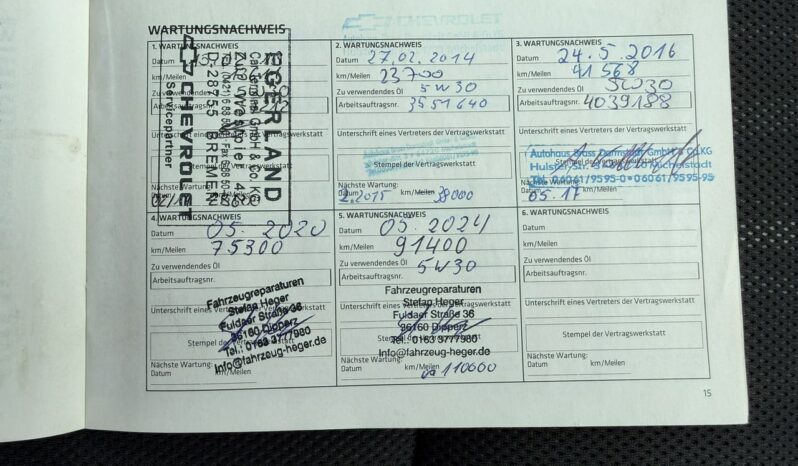 CHEVROLET
WARTUNGSNACHWEIS
1. WARTUNGSNACHWEIS
Datum
km/Meilen
Zu verwendendes
Arbeitsauftragsnr.
Unterschrift eines Vertreters der Vertragswerkstatt
Stempel der Vertragswerkstatt
Nächste Wartung:
EGERLAND
D - 28755 BREMEN
CHEVROLET
Servicepartner
2. WARTUNGSNACHWEIS
Datum 27.02.2014
km/Meilen 23700
Zu verwendendes Öl 5W30
Arbeitsauftragsnr. 3551640
Unterschrift eines Vertreters der Vertragswerkstatt
Stempel der Vertragswerkstatt
Nächste Wartung:
2.2015 km/Meilen
3. WARTUNGSNACHWEIS
Datum 24.5.2016
km/Meilen 41568
Zu verwendendes Öl 5W30
Arbeitsauftragsnr. 4039188
Unterschrift eines Vertreters der Vertragswerkstatt
Stempel der Vertragswerkstatt
Tel. 06061/9595-0 • 06061/9595-95
Nächste Wartung:
05.17
4. WARTUNGSNACHWEIS
Datum 05.2020
km/Meilen 75300
Zu verwendendes Öl
Arbeitsauftragsnr.
Unterschrift eines Vertreters der Vertragswerkstatt
Fahrzeugreparaturen
Stefan Heger
Fuldaer Straße 36
36160 Dipperz
Tel.: 0163 3777980
info@fahrzeug-heger.de
Stempel der Vertragswerkstatt
Nächste Wartung:
Datum km/Meilen
5. WARTUNGSNACHWEIS
Datum 05.2024
km/Meilen 91400
Zu verwendendes Öl 5W30
Arbeitsauftragsnr.
Fahrzeugreparaturen
Stefan Heger
Unterschrift eines Vertreters der Vertragswerkstatt
Fuldaer Straße 36
36160 Dipperz
Stempel der Vertragswerkstatt
Tel.: 0163 3777980
info@fahrzeug-heger.de
Nächste Wartung:
Datum km/Meilen
110000
6. WARTUNGSNACHWEIS
Datum
km/Meilen
Zu verwendendes Öl
Arbeitsauftragsnr.
Unterschrift eines Vertreters der Vertragswerkstatt
Stempel der Vertragswerkstatt
Nächste Wartung:
Datum km/Meilen
15